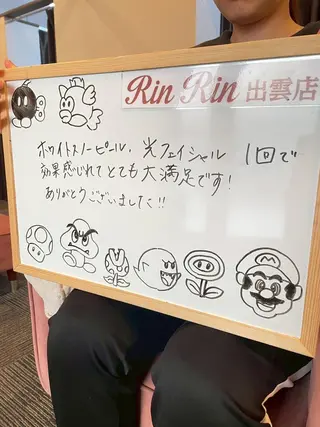 Rin Rin 出雲店
ホワイトスノーピール、光フェイシャル 1回で
効果感じれてとても大満足です!
ありがとうございました!!